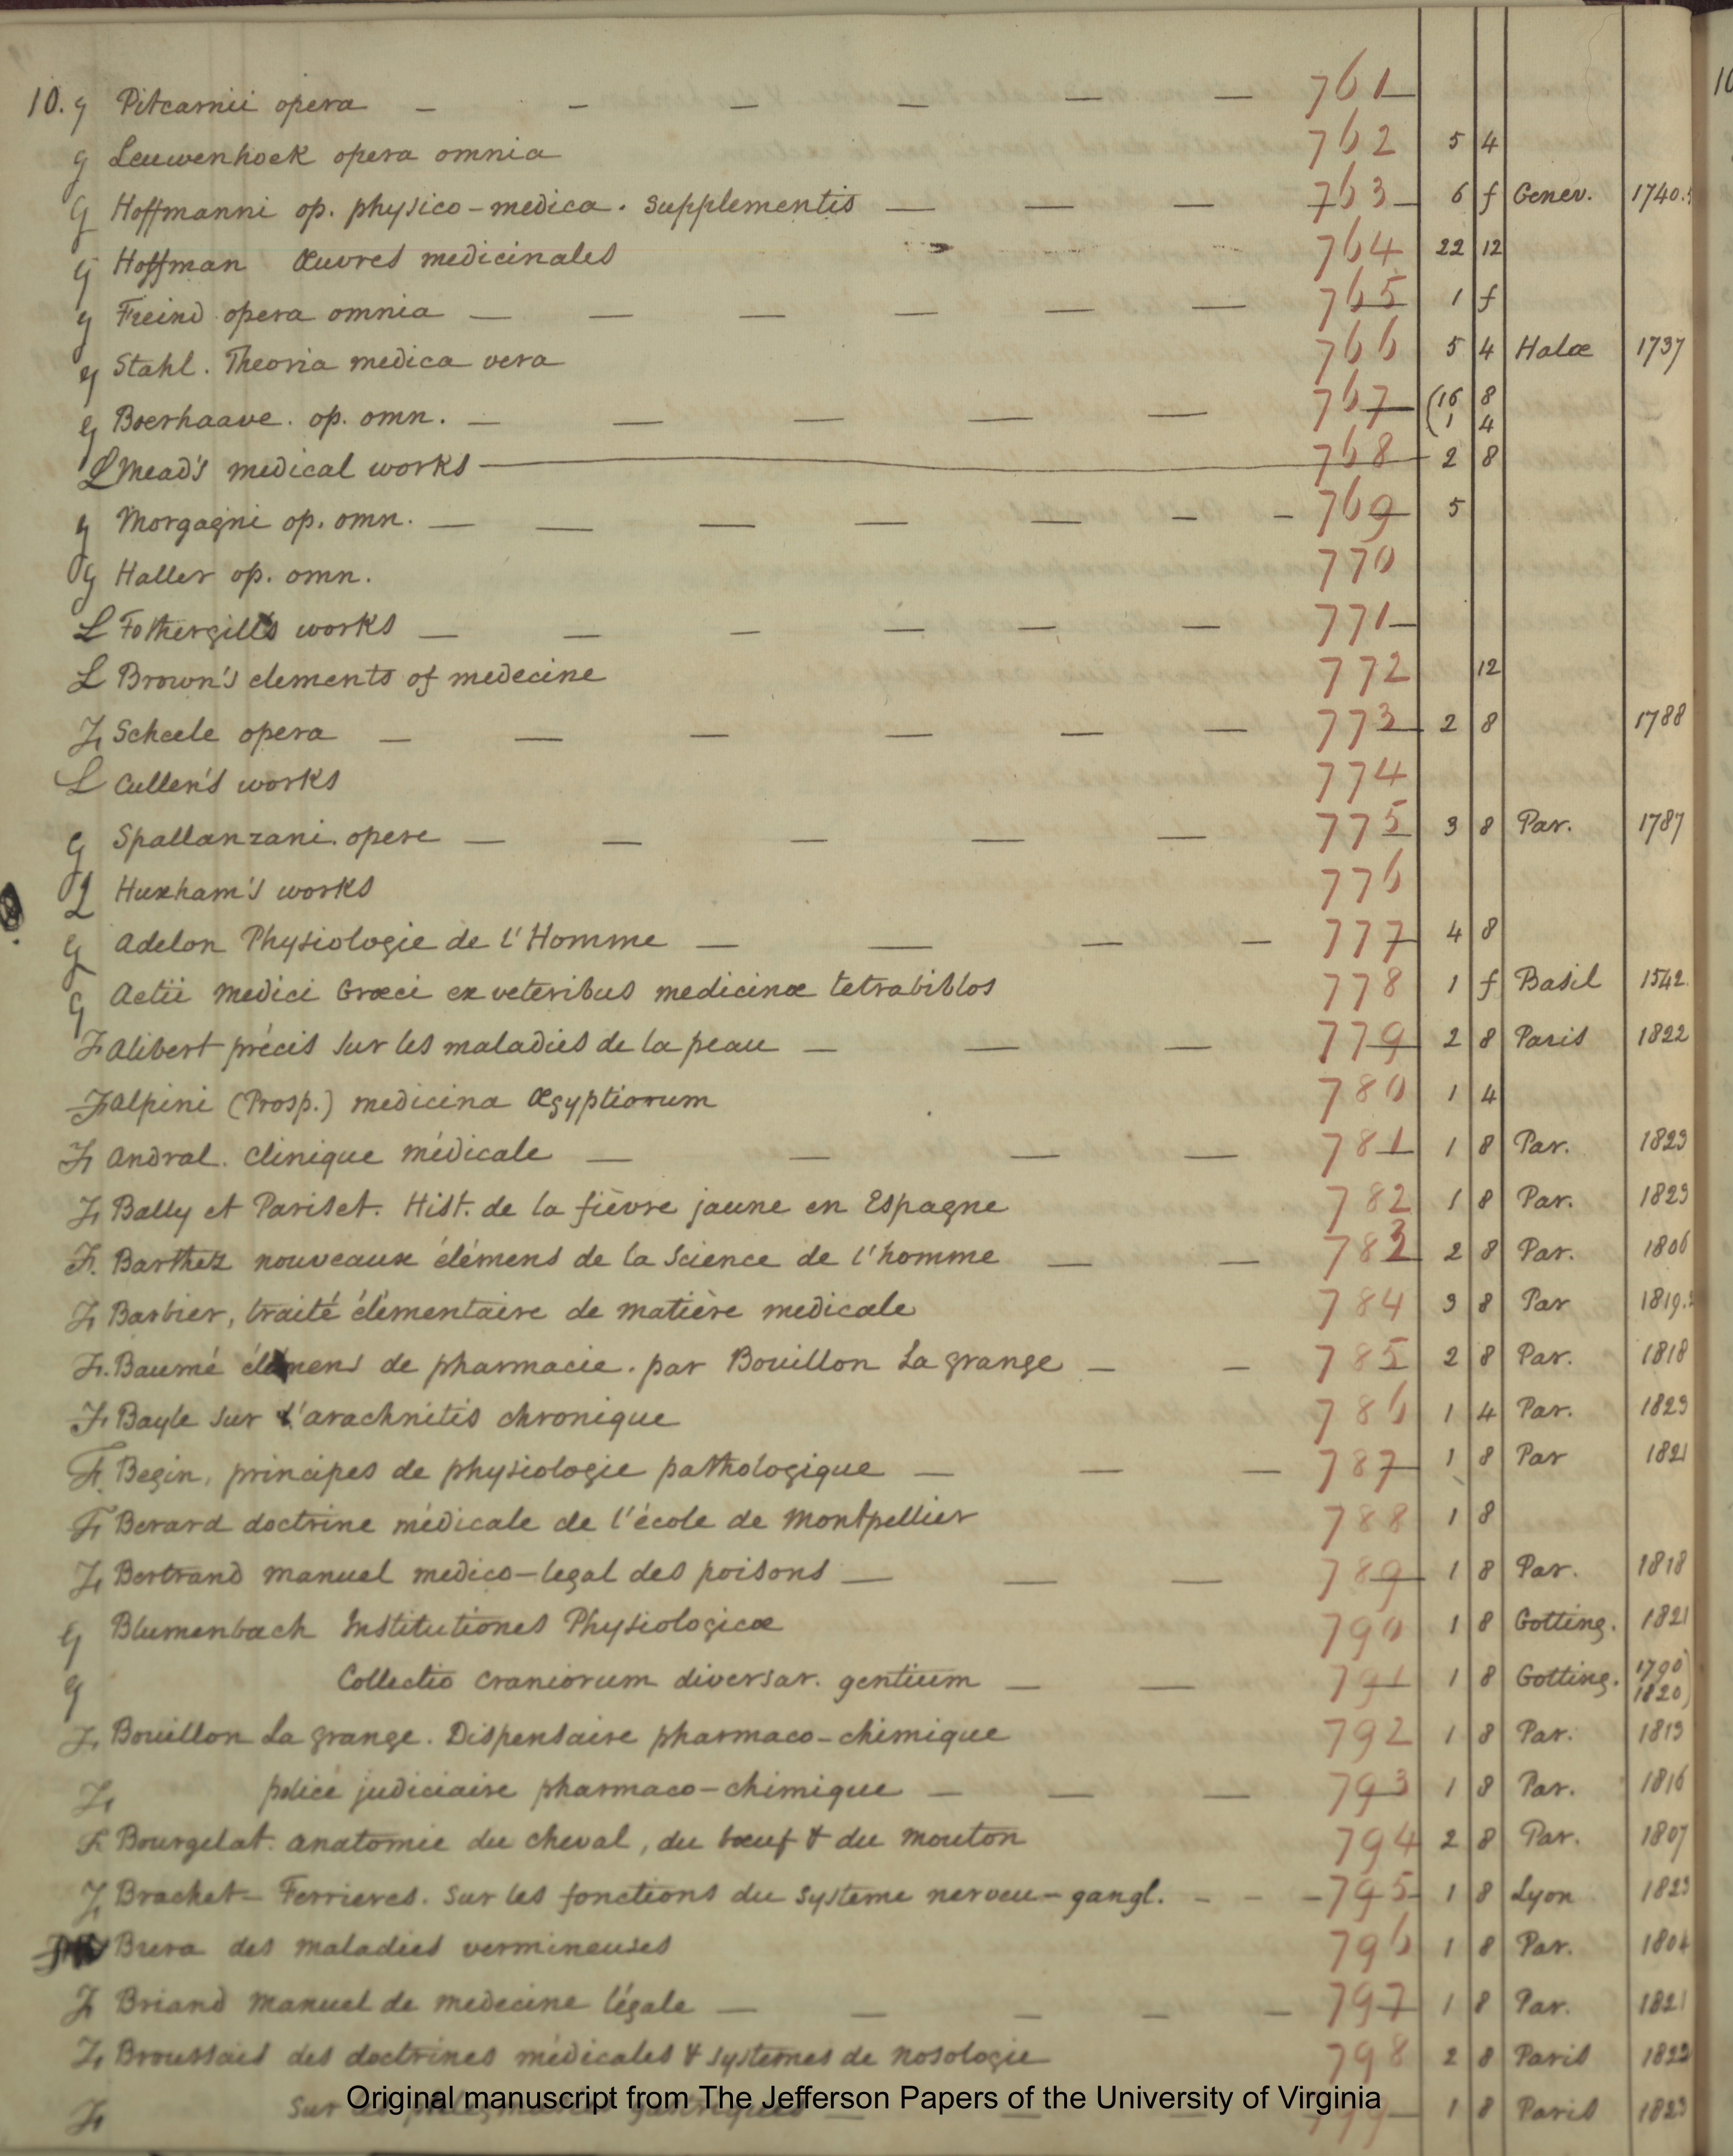 10. g Pitcarnii opera — — — — — — 761
g Leuwenhoek opera omnia 762 5 4
g Hoffmanni op. physico-medica. supplementis — — — 763 6 f Genev. 1740.
g Hoffman Œuvres medicinales 764 22 12
g Freind opera omnia — — — — — — 765 1 f
g Stahl. Theoria medica vera 766 5 4 Halæ 1737
g Boerhaave. op. omn. — — — — — 767 (16 8
(1 4
L Mead's medical works — 768 2 8
g Morgagni op. omn. — — — — — — — 769 5
g Haller op. omn. 770
L Fothergill's works — — — — — — 771
L Brown's elements of medecine 772 12
F Scheele opera — — — — — — 773 2 8 1788
L Cullen's works 774
g Spallanzani. opere — — — — — 775 3 8 Par. 1787
L Huxham's works 776
g Adelon Physiologie de l'Homme — — — — 777 4 8
g Aetii Medici Græci ex veteribus medicinæ tetrabiblos 778 1 f Basil 1542
F Alibert précis sur les maladies de la peau — — — 779 2 8 Paris 1822
F Alpini (Prosp.) medicina Ægyptiorum 780 1 4
F Andral. clinique médicale — — — — 781 1 8 Par. 1823
F Bally et Pariset. Hist. de la fièvre jaune en Espagne 782 1 8 Par. 1823
F. Barthez nouveaux élémens de la science de l'homme — — 783 2 8 Par. 1806
F Barbier, traité élémentaire de matière medicale 784 3 8 Par 1819.
F. Baumé élémens de pharmacie. par Bouillon La grange — — 785 2 8 Par. 1818
F Bayle sur l'arachnitis chronique 786 1 4 Par. 1823
F Begin, principes de physiologie pathologique — — — 787 1 8 Par 1821
F Berard doctrine médicale de l'école de Montpellier 788 1 8
F Bertrand manuel medico-legal des poisons — — — 789 1 8 Par. 1818
g Blumenbach Institutiones Physiologicæ 790 1 8 Gotting. 1821
g Collectio craniorum diversar. gentium — — 791 1 8 Gotting. 1790)
1820)
F. Bouillon La grange. Dispensaire pharmaco-chimique 792 1 8 Par. 1813
F police judiciaire pharmaco-chimique — — — 793 1 8 Par. 1816
F Bourgelat. anatomie du cheval, du bœuf & du mouton 794 2 8 Par. 1807
F Brachet- Ferrieres. sur les fonctions du systeme nerveu-gangl. - - - 795 1 8 Lyon 1823
Brera des maladies vermineuses 796 1 8 Par. 1804
F Briand manuel de medecine légale — — — — — 797 1 8 Par. 1821
F Broussais des doctrines médicales & systemes de nosologie 798 2 8 Paris
F sur 799 1 8 Paris 1823
Original manuscript from The Jefferson Papers of the University of Virginia